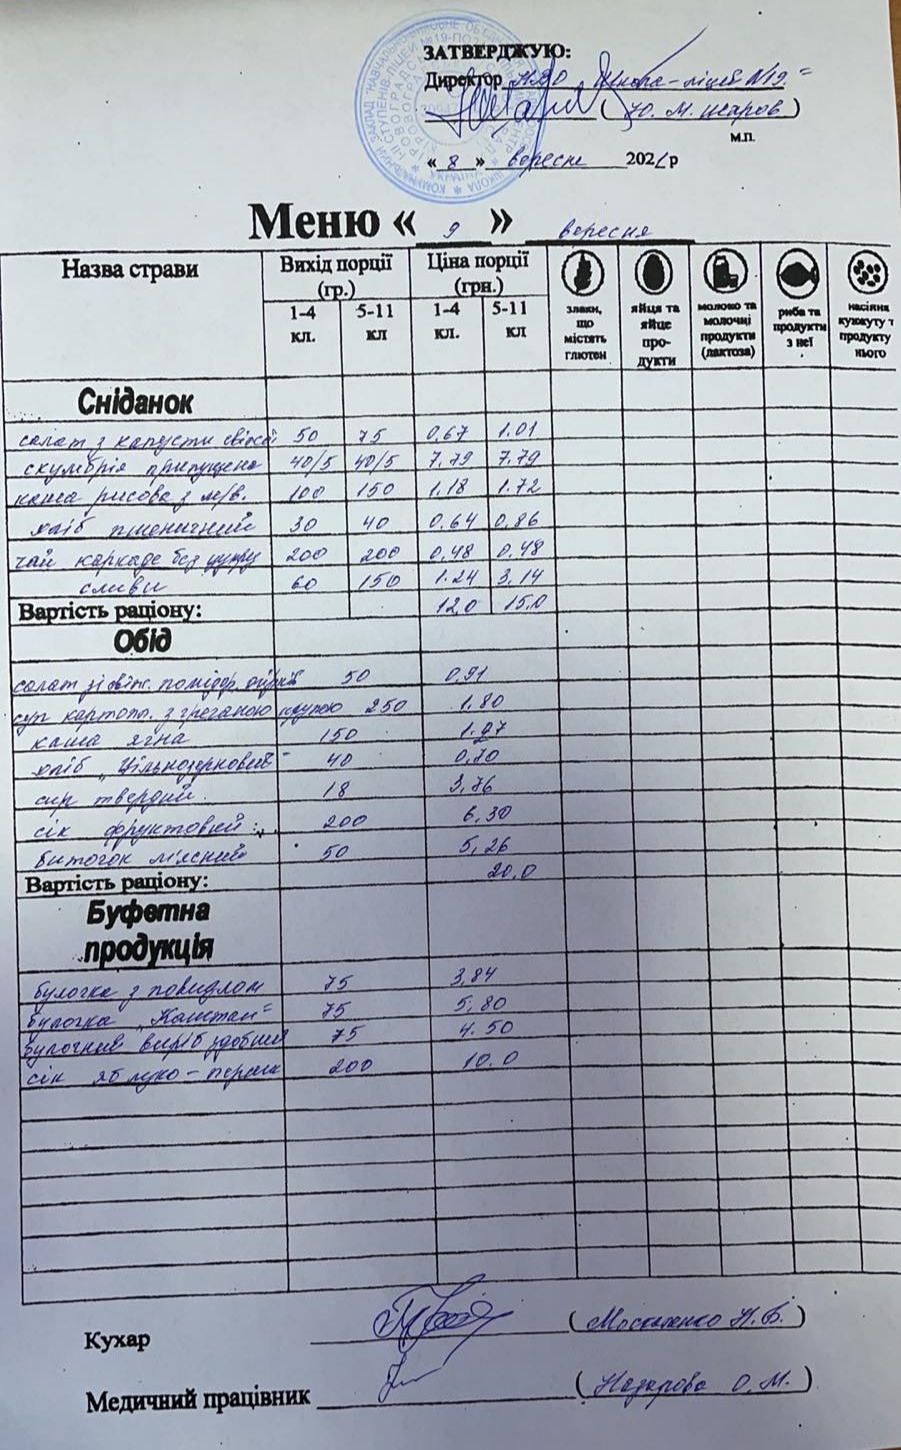 ЗАТВЕРДЖУЮ:
Директор НВО Школа-ліцей N19"
(Ю. М. Шаров)
м.п.
« 8 » вересня 2021р
Меню « 9 » вересня
Назва страви Вихід порції (гр.) Ціна порції (грн.)
1-4 кл. 5-11 кл 1-4 кл. 5-11 кл
злаки, що містять глютен
яйця та яйце про-дукти
молоко та молочні продукти (лактоза)
риба та продукти з неї
насіння кунжуту т продукту нього
Сніданок
салат з капусти свіжої 50 75 0,67 1.01
скумбрія припущена 40/5 40/5 7.79 7.79
каша рисова з м/в. 100 150 1.18 1.72
хліб пшеничний 30 40 0.64 0,86
чай каркаде без цукру 200 200 0,48 0.48
сливи 60 150 1.24 3,14
Вартість раціону: 12,0 15,0
Обід
салат зі свіж. помідор. 50 0,91
суп картопл. з гречаною крупою 250 1,80
каша ячна 150 1.27
хліб „Цільнозерновий" 40 0,70
сир твердий 18 3,76
сік фруктовий 200 6,30
биточок м'ясний 50 5,26
Вартість раціону: 20,0
Буфетна
продукція
булочка з повидлом 75 3,84
булочка „Каштан" 75 5,80
булочний виріб здобний 75 4.50
сік яблуко-персик 200 10.0
Кухар (Москаленко Н.В.)
Медичний працівник (Назарова О.М.)